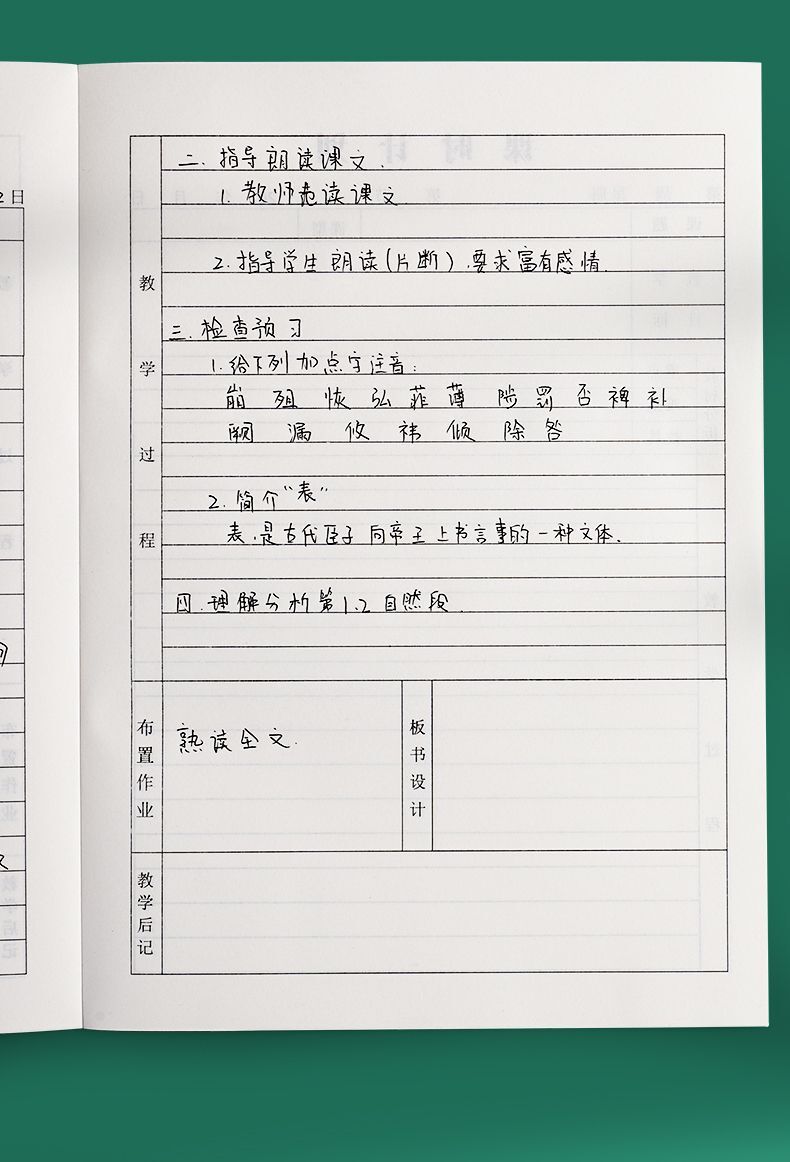 2日
教学过程
二.指导朗读课文.
1.教师范读课文
2.指导学生朗读(片断).要求富有感情.
三.检查预习
1.给下列加点字注音:
崩 殂 恢 弘 菲 薄 陟 罚 否 裨 补
阙 漏 攸 祎 倾 除 咎
2.简介“表”
表.是古代臣子向帝王上书言事的一种文体.
四.理解分析第1.2自然段.
布置作业
熟读全文.
板书设计
教学后记